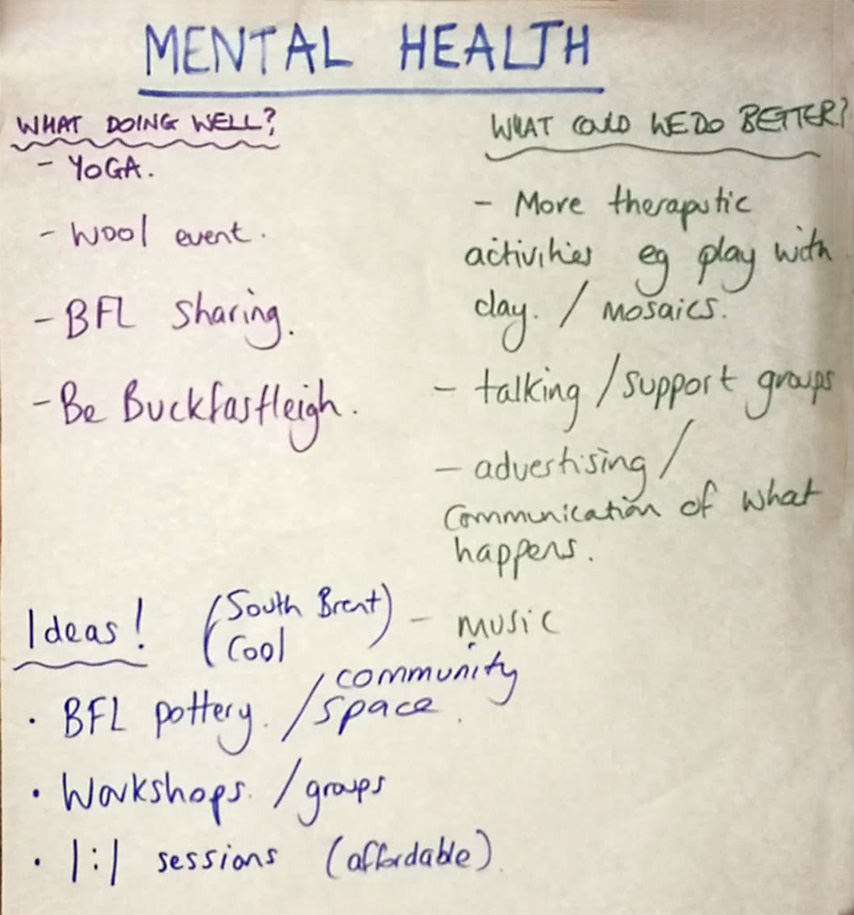 MENTAL HEALTH
WHAT DOING WELL?
- YOGA.
- Wool event.
- BFL Sharing.
- Be Buckfastleigh.
WHAT COULD WE DO BETTER?
- More theraputic
activities eg play with
clay. / mosaics.
- talking / support groups
- advertising /
Communication of what
happens.
- music
Ideas! (South Brent)
(Cool
• BFL pottery. / community
space.
• Workshops. / groups
• 1:1 sessions (affordable)